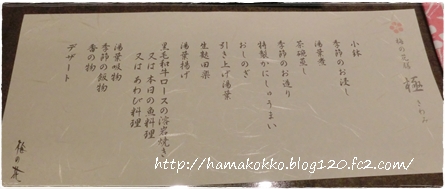 梅の花膳
極
きわみ
小鉢
季節のお浸し
湯葉煮
茶碗蒸し
季節のお造り
特製かにしゅうまい
おしのぎ
引き上げ湯葉
生麩田楽
湯葉揚げ
黒毛和牛ロースの溶岩焼き
又は本日の魚料理
又はあわび料理
湯葉吸物
季節の飯物
香の物
デザート
梅の花
http://hamakokko.blog120.fc2.com/